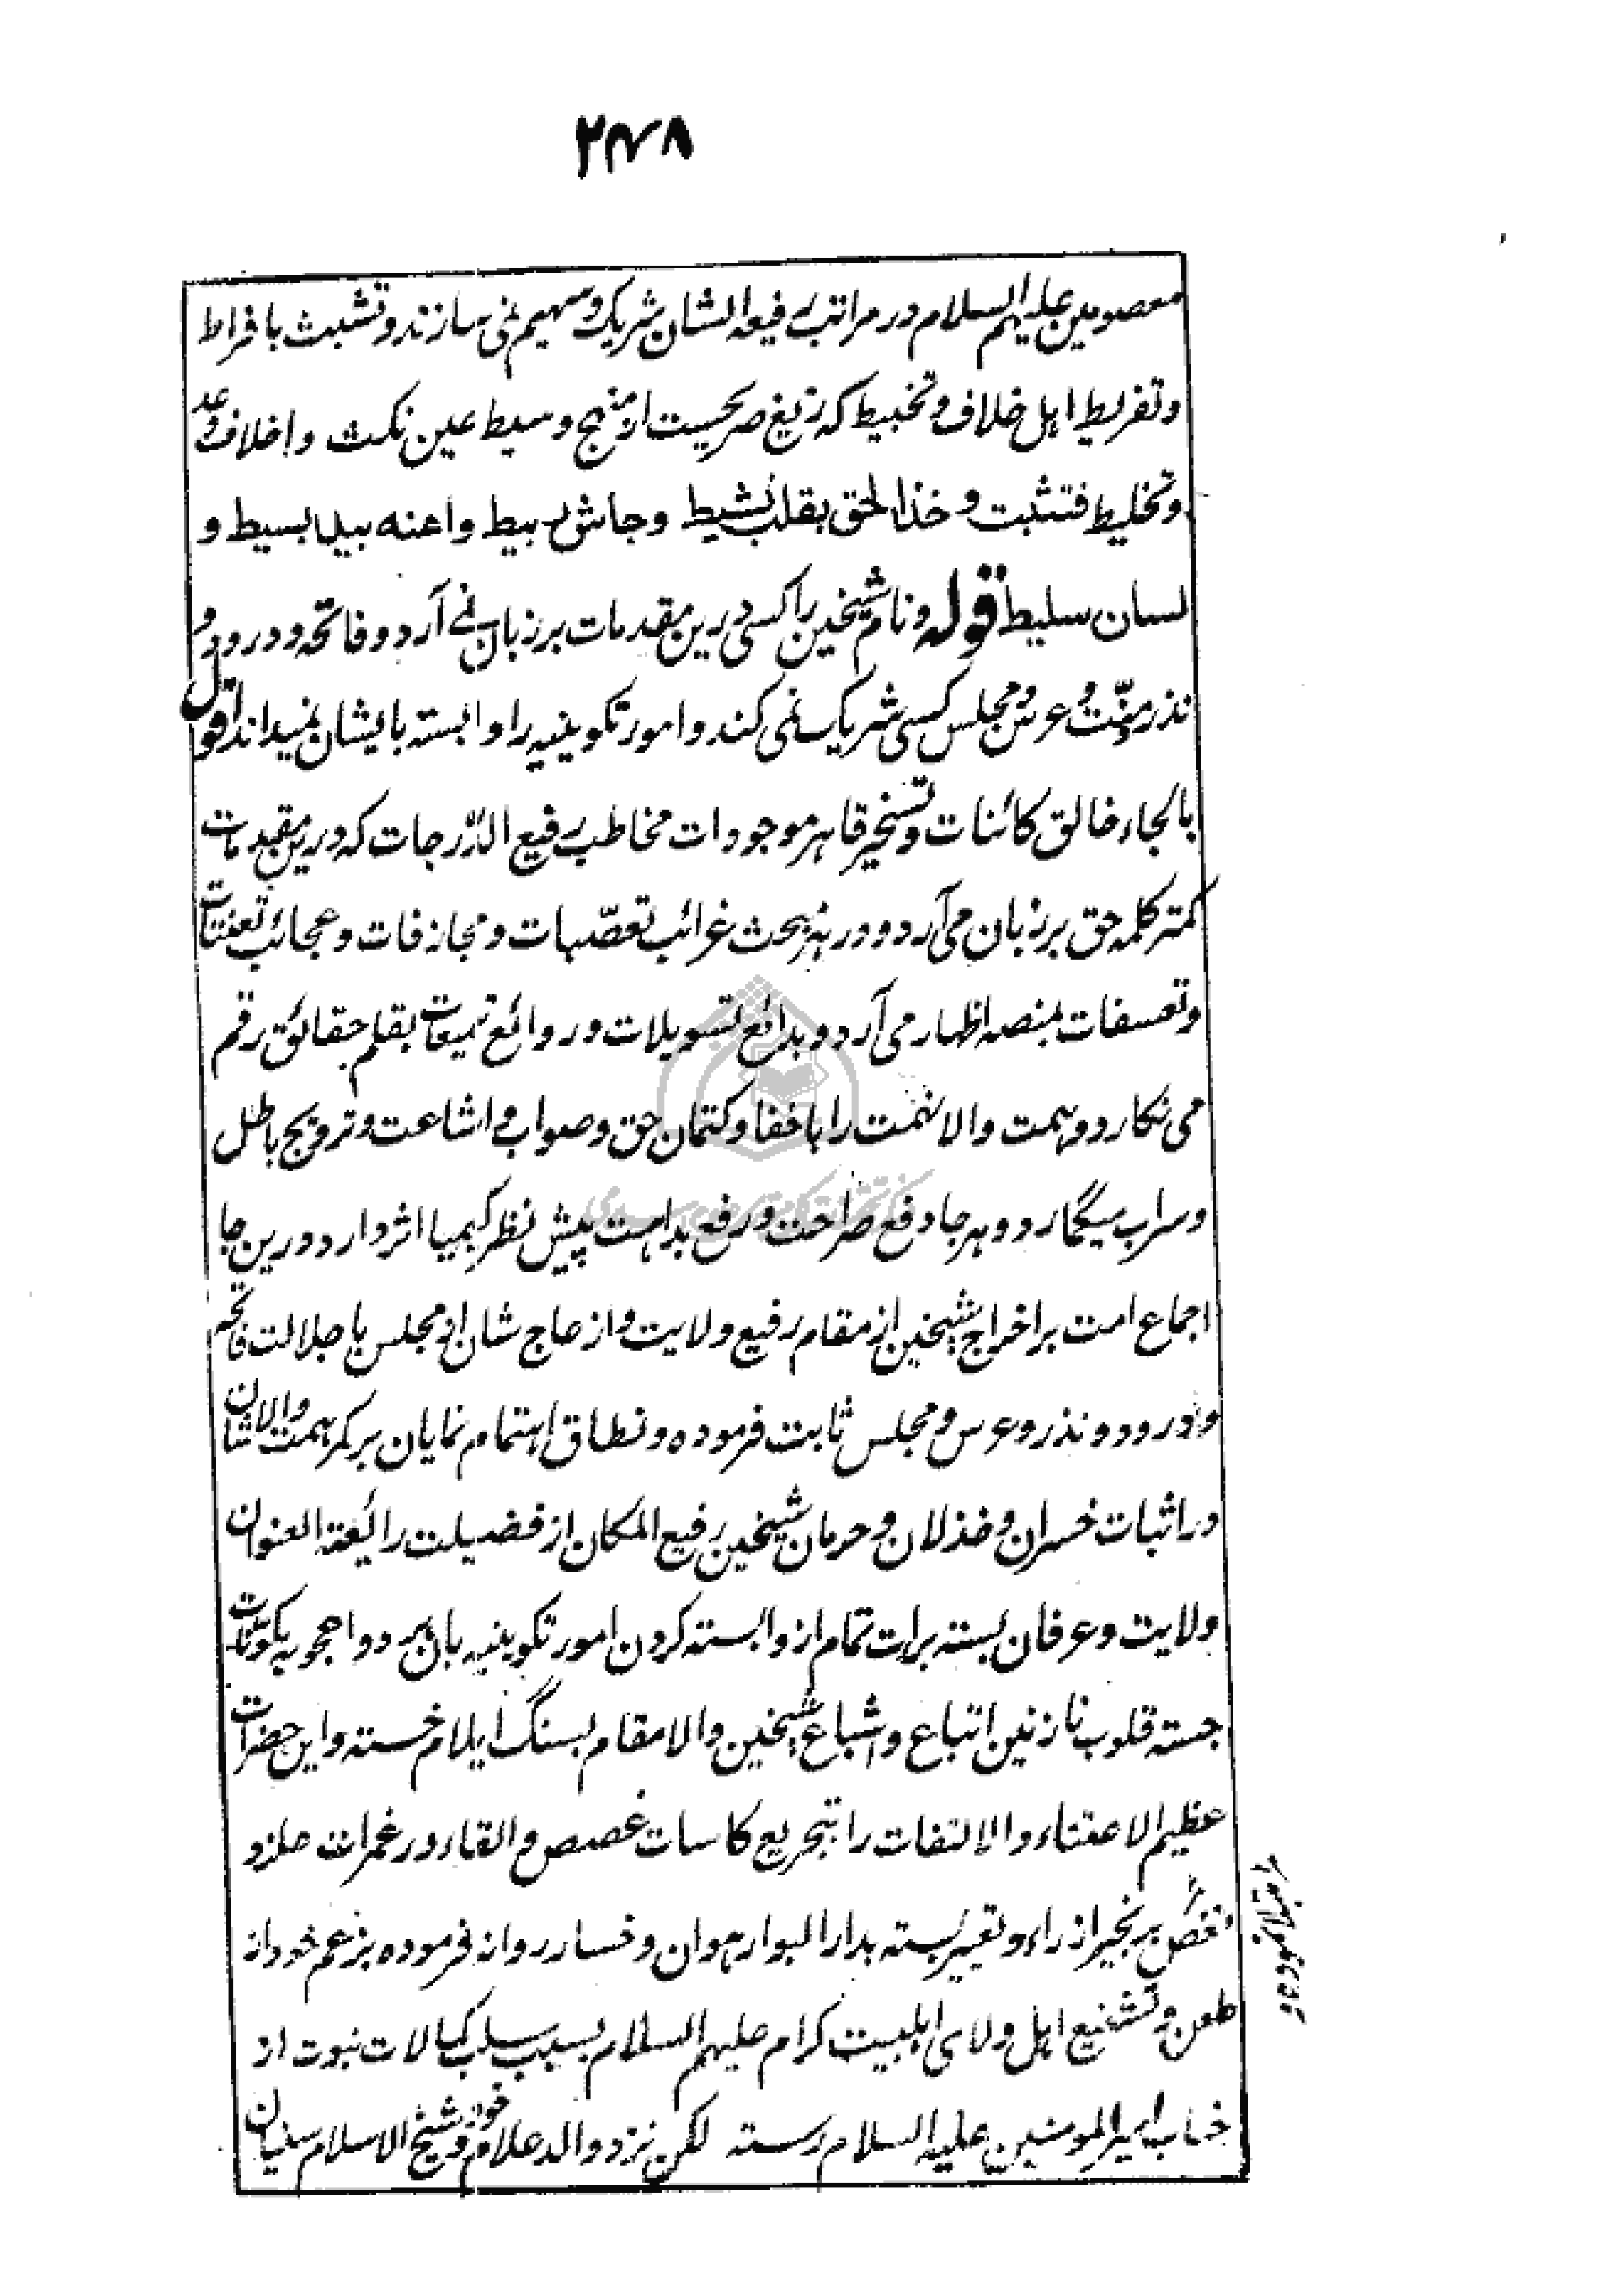 ۲۶۸
معصومین علیهم السلام در مراتب رفیعه الشان شریک و سهیم نمی سازند و تشبث بافراط
و تفریط اهل خلاف و تخبیط که زیغ صریحست از منهج وسیط عین نکث و اخلاف وعد
و تخلیط فتثبت و خذ الحق بقلب نشیط و جاش ربیط و اعنه بید بسیط و
لسان سلیط قوله و نام شیخین را کسی درین مقدمات بر زبان نمے آرد و فاتحه و درود و
نذر و منّت و عرس و مجلس کسی شریک نمی کند و امور تکوینیه را وابسته بایشان نمیداند اقول
بالجاء خالق کائنات و تسخیر قاهر موجودات مخاطب رفیع الدّرجات که درین مقدمات
کمتر کلمه حق بر زبان می آرد و در هر بحث غرائب تعصّبات و مجازفات و عجائب تعنتات
و تعسفات بمنصه اظهار می آرد و بدائع تسویلات و روائع تمیعات بقلم حقائق رقم
می نگارد و همت والا نهمت را باخفا و کتمان حق و صواب و اشاعت و ترویج باطل
و سراب میگمارد و هر جا دفع صراحت و رفع بداهت پیش نظر کیمیا اثر دارد درین جا
اجماع امت بر اخراج شیخین از مقام رفیع ولایت و ازعاج شان از مجلس با جلالت فاتحه
و درود و نذر و عرس و مجلس ثابت فرموده و نطاق اهتمام نمایان بر کمر همت والاشان
در اثبات خسران و خذلان و حرمان شیخین رفیع المکان از فضیلت رائعة العنوان
ولایت و عرفان بسته برات تمام از وابسته کردن امور تکوینیه بان هر دو اعجوبه
جسته قلوب نازنین اتباع و اشیاع شیخین والامقام بسنگ ایلام خسته و این حضرات
عظیم الاعتناء و الالتفات را بتجریع کاسات غصص و القاء در غمرات علز و
بزنجیر ازراء و تعییر بسته بدار البوار هوان و خسار روانه فرموده بزعم خود از
طعن و تشنیع اهل ولای اهلبیت کرام علیهم السلام بسبب سلب کمالات نبوت از
جناب امیر المومنین علیه السلام رسته لکن نزد والد علام خود و شیخ الاسلام سنیان